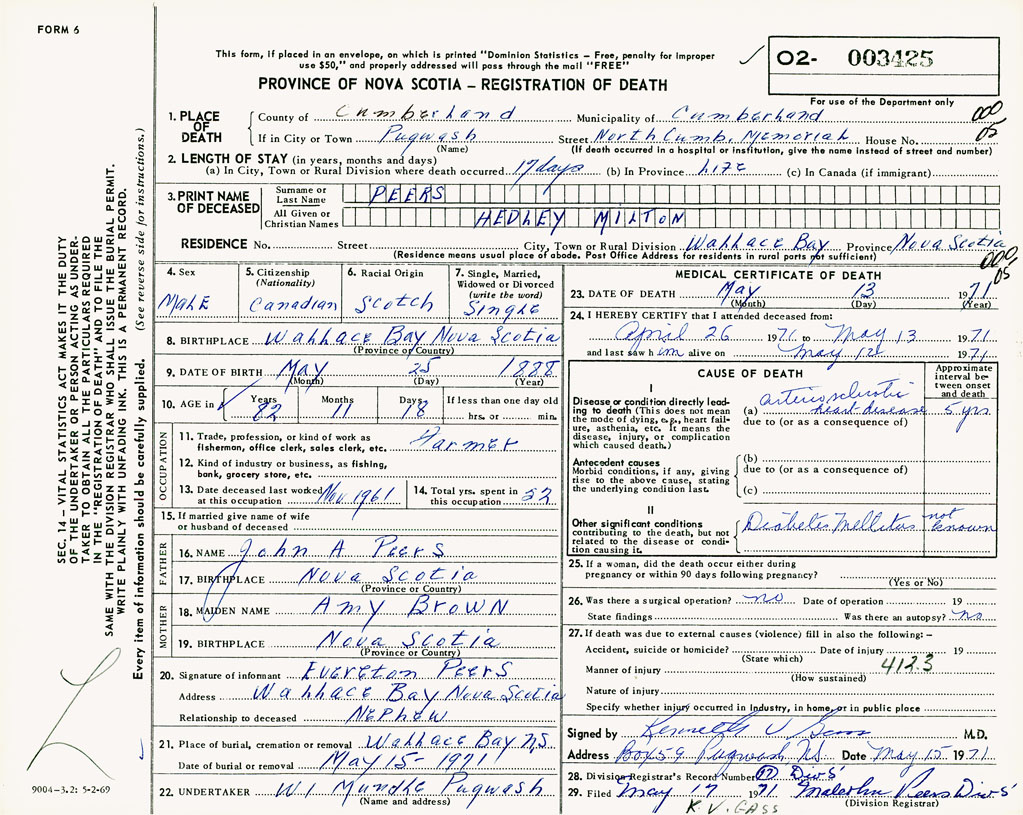 FORM 6
This form, if placed in an envelope, on which is printed "Dominion Statistics – Free, penalty for improper
use $50," and properly addressed will pass through the mail "FREE"
PROVINCE OF NOVA SCOTIA – REGISTRATION OF DEATH
O2- 003425
For use of the Department only
1. PLACE OF DEATH County of Cumberland Municipality of Cumberland 000
If in City or Town Pugwash Street North Cumb. Memorial House No. 05
(Name) (If death occurred in a hospital or institution, give the name instead of street and number)
2. LENGTH OF STAY (in years, months and days)
(a) In City, Town or Rural Division where death occurred 17 days (b) In Province Life (c) In Canada (if immigrant)
3. PRINT NAME OF DECEASED Surname or Last Name PEERS
All Given or Christian Names HEDLEY MILTON
RESIDENCE No. Street City, Town or Rural Division Wallace Bay Province Nova Scotia
(Residence means usual place of abode. Post Office Address for residents in rural ports not sufficient) 000 05
4. Sex Male
5. Citizenship (Nationality) Canadian
6. Racial Origin Scotch
7. Single, Married, Widowed or Divorced (write the word) Single
8. BIRTHPLACE Wallace Bay Nova Scotia
(Province or Country)
9. DATE OF BIRTH May 25 1888
(Month) (Day) (Year)
10. AGE in Years 82 Months 11 Days 18 If less than one day old hrs. or min.
OCCUPATION
11. Trade, profession, or kind of work as fisherman, office clerk, sales clerk, etc. Farmer
12. Kind of industry or business, as fishing, bank, grocery store, etc.
13. Date deceased last worked at this occupation Nov 1961
14. Total yrs. spent in this occupation 52
15. If married give name of wife or husband of deceased
FATHER
16. NAME John A Peers
17. BIRTHPLACE Nova Scotia
(Province or Country)
MOTHER
18. MAIDEN NAME Amy Brown
19. BIRTHPLACE Nova Scotia
(Province or Country)
20. Signature of informant Evereton Peers
Address Wallace Bay Nova Scotia
Relationship to deceased Nephew
21. Place of burial, cremation or removal Wallace Bay N.S
Date of burial or removal May 15 - 1971
22. UNDERTAKER W I Mundle Pugwash
(Name and address)
MEDICAL CERTIFICATE OF DEATH
23. DATE OF DEATH May 13 1971
(Month) (Day) (Year)
24. I HEREBY CERTIFY that I attended deceased from:
April 26 1971 to May 13 1971
and last saw him alive on May 12 1971
CAUSE OF DEATH
Approximate interval between onset and death
I
Disease or condition directly leading to death (This does not mean the mode of dying, e.g., heart failure, asthenia, etc. It means the disease, injury, or complication which caused death.)
(a) arteriosclerotic heart disease 5 yrs
due to (or as a consequence of)
Antecedent causes
Morbid conditions, if any, giving rise to the above cause, stating the underlying condition last.
(b)
due to (or as a consequence of)
(c)
II
Other significant conditions contributing to the death, but not related to the disease or condition causing it.
Diabetes Mellitus not known
25. If a woman, did the death occur either during pregnancy or within 90 days following pregnancy?
(Yes or No)
26. Was there a surgical operation? no Date of operation 19
State findings Was there an autopsy? no
27. If death was due to external causes (violence) fill in also the following: –
Accident, suicide or homicide? Date of injury 19
(State which) 412.3
Manner of injury
(How sustained)
Nature of injury
Specify whether injury occurred in Industry, in home, or in public place
Signed by Kenneth V Gass M.D.
Address Box 59 Pugwash N.S. Date May 15 1971
28. Division Registrar's Record Number 17 Div 5
29. Filed May 17 1971 Malcolm Peers Div 5
(Division Registrar)
K.V. GASS
SEC. 14 – VITAL STATISTICS ACT MAKES IT THE DUTY
OF THE UNDERTAKER OR PERSON ACTING AS UNDER-
TAKER TO OBTAIN ALL THE PARTICULARS REQUIRED
IN THE "REGISTRATION OF DEATH" AND TO FILE THE
SAME WITH THE DIVISION REGISTRAR WHO SHALL ISSUE THE BURIAL PERMIT.
WRITE PLAINLY WITH UNFADING INK. THIS IS A PERMANENT RECORD.
Every item of information should be carefully supplied. (See reverse side for instructions.)
9004–3.2: 5-2-69